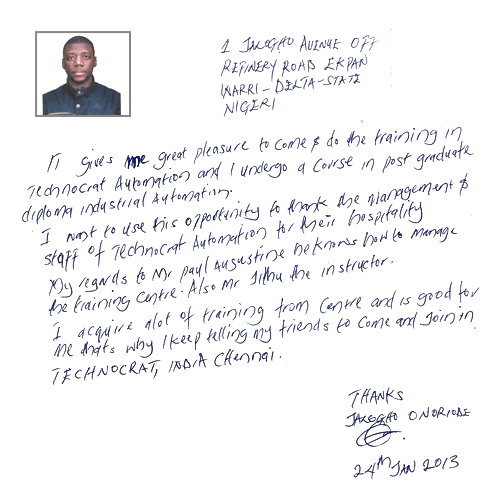 1 JAKOGHO AVENUE OFF
REFINERY ROAD EKPAN
WARRI - DELTA - STATE
NIGERI
IT gives me great pleasure to come & do the training in
Technocrat Automation and I undergo a course in post graduate
diploma industrial Automation.
I want to use this opportunity to thank the management &
staff of Technocrat Automation for their hospitality
My regards to Mr paul Augustine he knows how to manage
the training centre. Also Mr Jithu the instructor.
I acquire alot of training from Centre and is good for
me thats why I keep telling my friends to come and Join in
TECHNOCRAT, INDIA CHennai.
THANKS
JAKOGHO ONORIODE
24TH JAN 2013